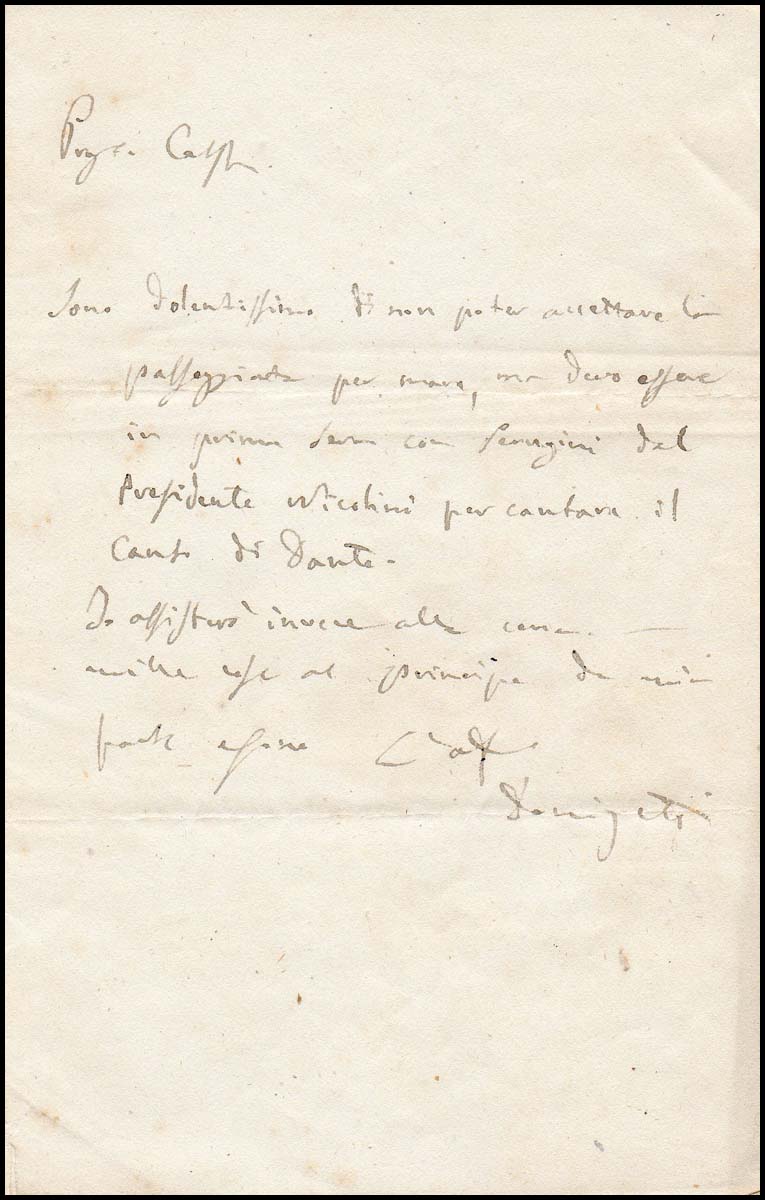 Sono dolentissimo di non poter accettare la
passeggiata per mare, ma devo essere
in prima sera con Perugini dal
Presidente Nicolini per cantare il
Canto di Dante.
Io assisterò invece alla cena. —
mille cose al principe da mia
parte
Donizetti